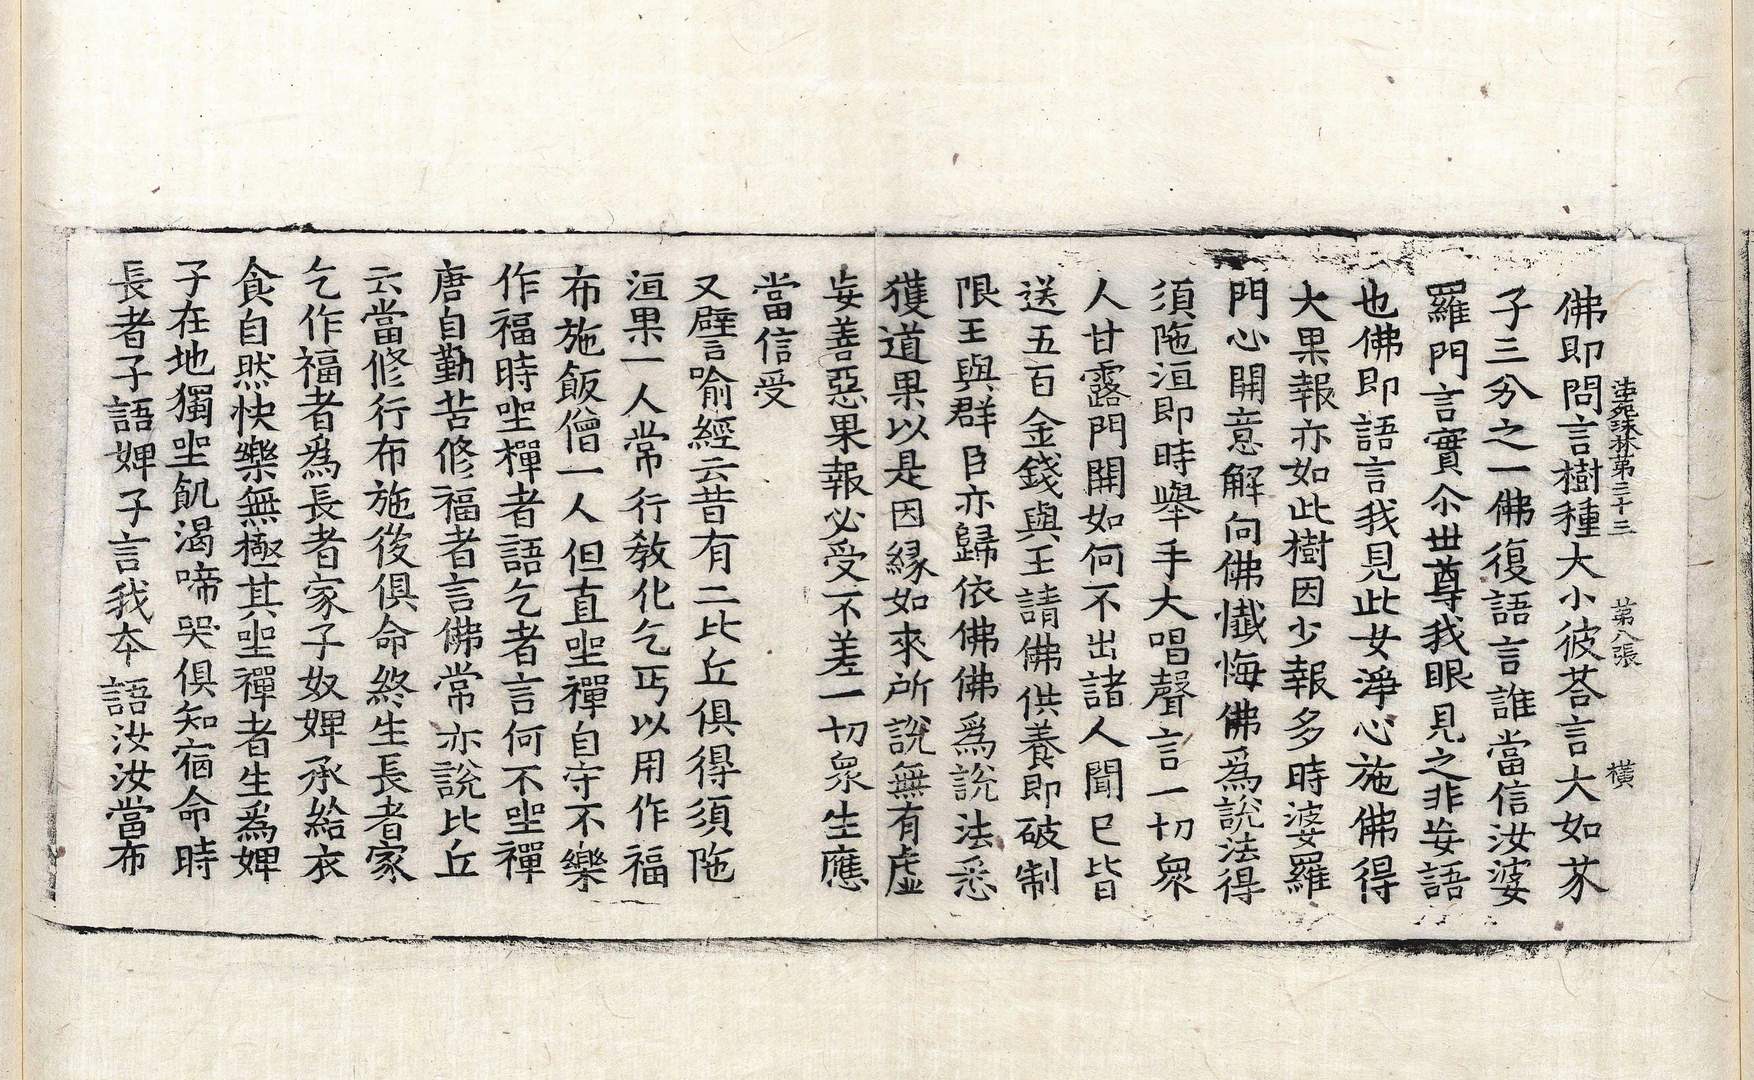 法苑珠林第三十三　第八張　橫
佛即問言樹種大小彼荅言大如芥
子三分之一佛復語言誰當信汝婆
羅門言實尒世尊我眼見之非妄語
也佛即語言我見此女淨心施佛得
大果報亦如此樹因少報多時婆羅
門心開意解向佛懺悔佛爲說法得
須陁洹即時舉手大唱聲言一切衆
人甘露門開如何不出諸人聞已皆
送五百金錢與王請佛供養即破制
限王與群臣亦歸依佛佛爲說法悉
獲道果以是因緣如來所說無有虛
妄善惡果報必受不差一切衆生應
當信受
又譬喻經云昔有二比丘俱得須陁
洹果一人常行教化乞丐以用作福
布施飯僧一人但直坐禪自守不樂
作福時坐禪者語乞者言何不坐禪
唐自勤苦修福者言佛常亦說比丘
云當修行布施後俱命終生長者家
乞作福者爲長者家子奴婢承給衣
食自然快樂無極其坐禪者生爲婢
子在地獨坐飢渴啼哭俱知宿命時
長者子語婢子言我本語汝汝當布